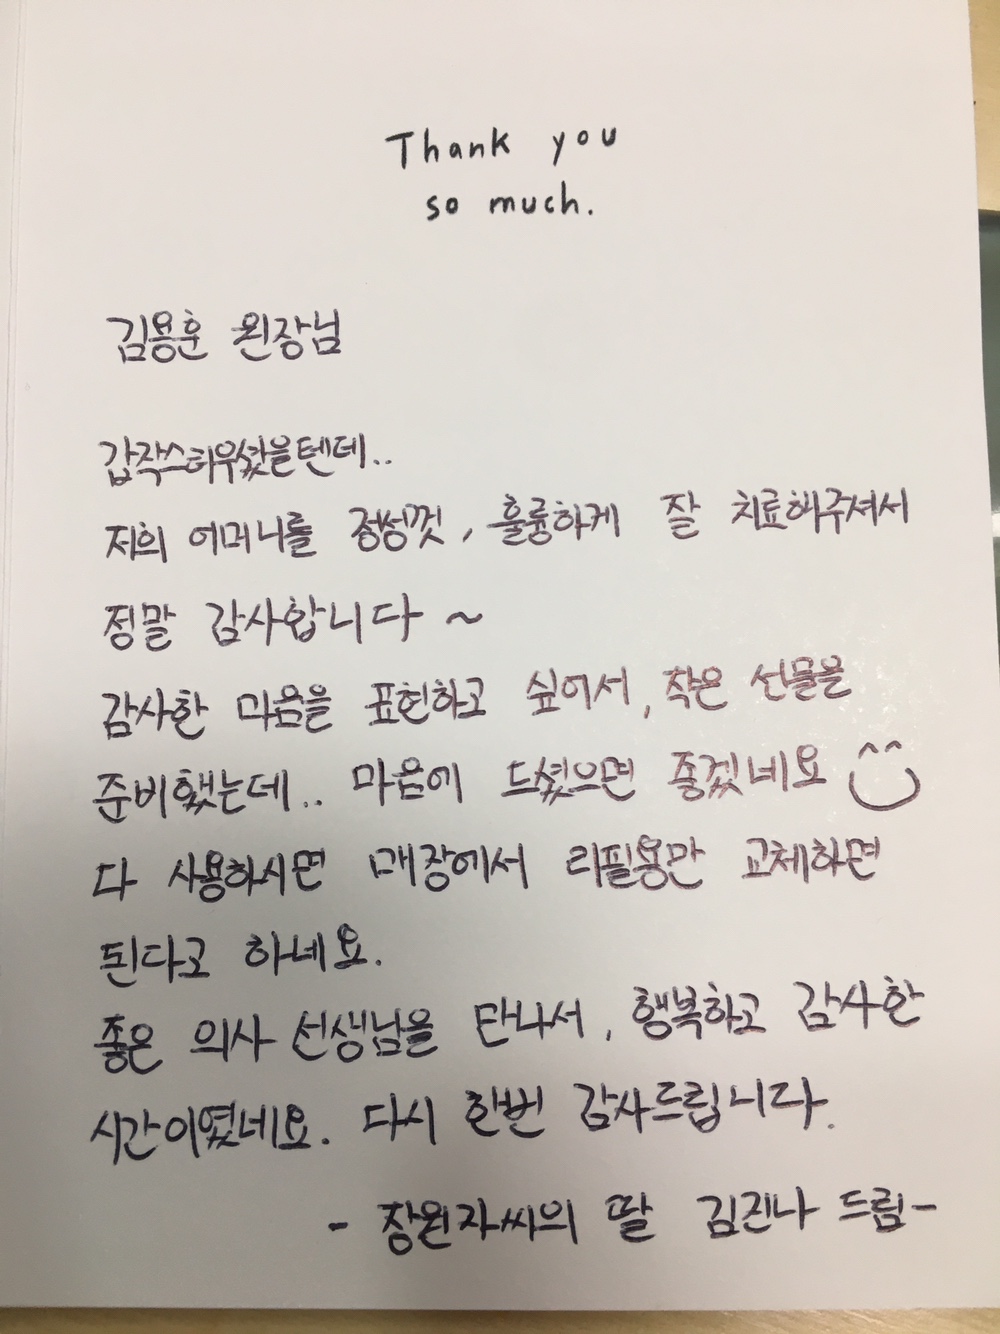 Thank you
so much.
김용훈 원장님
갑작스러우셨을텐데..
저희 어머니를 정성껏, 훌륭하게 잘 치료해주셔서
정말 감사합니다 ~
감사한 마음을 표현하고 싶어서, 작은 선물을
준비했는데.. 마음에 드셨으면 좋겠네요
다 사용하시면 매장에서 리필용만 교체하면
된다고 하네요.
좋은 의사 선생님을 만나서, 행복하고 감사한
시간이였네요. 다시 한번 감사드립니다.
- 장원자씨의 딸 김진나 드림-